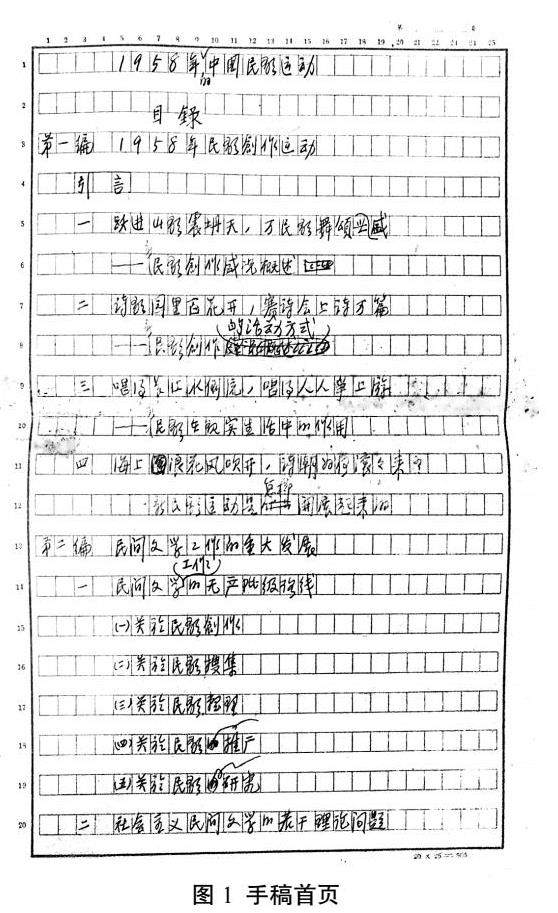 1 2 3 4 5 6 7 8 9 10 11 12 13 14 15 16 17 18 19 20 21 22 23 24 25
1 1958年的中国民歌运动
2 目录
3 第一编 1958年民歌創作运动
4 引言
5 一 跃进山歌震坍天，万民歌舞頌
6 ——民歌創作盛况概述
7 二 诗歌园里百花开，赛诗会上诗万篇
的活动方式
8 ——民歌創作
9 三 唱得长江水倒流，唱得人人爭上游
10 ——民歌在现实生活中的作用
11 四 海上浪花风吹开，诗潮
怎样
12 新民歌运动是开展起来的
13 第二编 民间文学工作的重大发展
工作
14 一 民间文学的无产阶级路线
15 (一)关於民歌創作
16 (二)关於民歌搜集
17 (三)关於民歌整理
18 (四)关於民歌的推广
19 (五)关於民歌的研究
20 二 社会主义民间文学的若干理论问题
20×25=500
图1 手稿首页